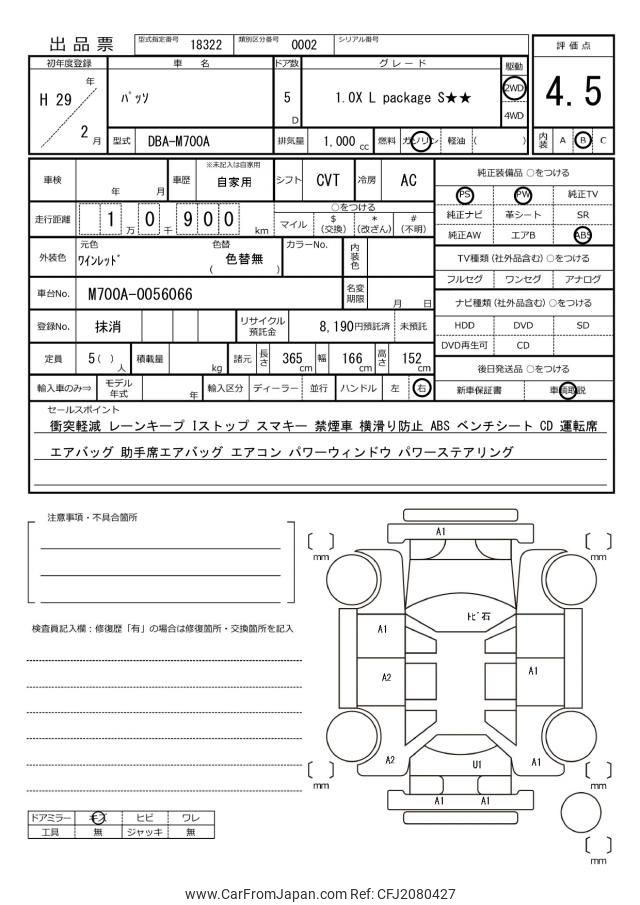 出品票 型式指定番号 18322 類別区分番号 0002 シリアル番号
評価点
4.5
内装 A B C
初年度登録 車名 ドア数 グレード 駆動
H 29 年 2 月 パッソ 5 D 1.0X L package S★★ 2WD 4WD
型式 DBA-M700A 排気量 1,000 cc 燃料 ガソリン 軽油 ( )
車検 年 月 車歴 ※未記入は自家用 自家用 シフト CVT 冷房 AC
走行距離 1 万 0 千 9 0 0 km
○をつける
マイル $(交換) *(改ざん) #(不明)
外装色 元色 ワインレッド 色替 ( 色替無 ) カラーNo. 内装色
車台No. M700A-0056066 名変期限 月 日
登録No. 抹消 リサイクル預託金 8,190円預託済 未預託
定員 5 ( ) 人 積載量 kg 諸元 長さ 365 cm 幅 166 cm 高さ 152 cm
輸入車のみ⇒ モデル年式 年 輸入区分 ディーラー 並行 ハンドル 左 右
純正装備品 ○をつける
PS PW 純正TV
純正ナビ 革シート SR
純正AW エアB ABS
TV種類 (社外品含む) ○をつける
フルセグ ワンセグ アナログ
ナビ種類 (社外品含む) ○をつける
HDD DVD SD
DVD再生可 CD
後日発送品 ○をつける
新車保証書 車輌取説
セールスポイント
衝突軽減 レーンキープ Iストップ スマキー 禁煙車 横滑り防止 ABS ベンチシート CD 運転席
エアバッグ 助手席エアバッグ エアコン パワーウィンドウ パワーステアリング
注意事項・不具合箇所
検査員記入欄：修復歴「有」の場合は修復箇所・交換箇所を記入
ドアミラー キズ ヒビ ワレ
工具 無 ジャッキ 無
A1
mm
mm
トビ石
A1
A2
A1
A2
U1
A1
mm
mm
A1 A1
mm
www.CarFromJapan.com Ref: CFJ2080427